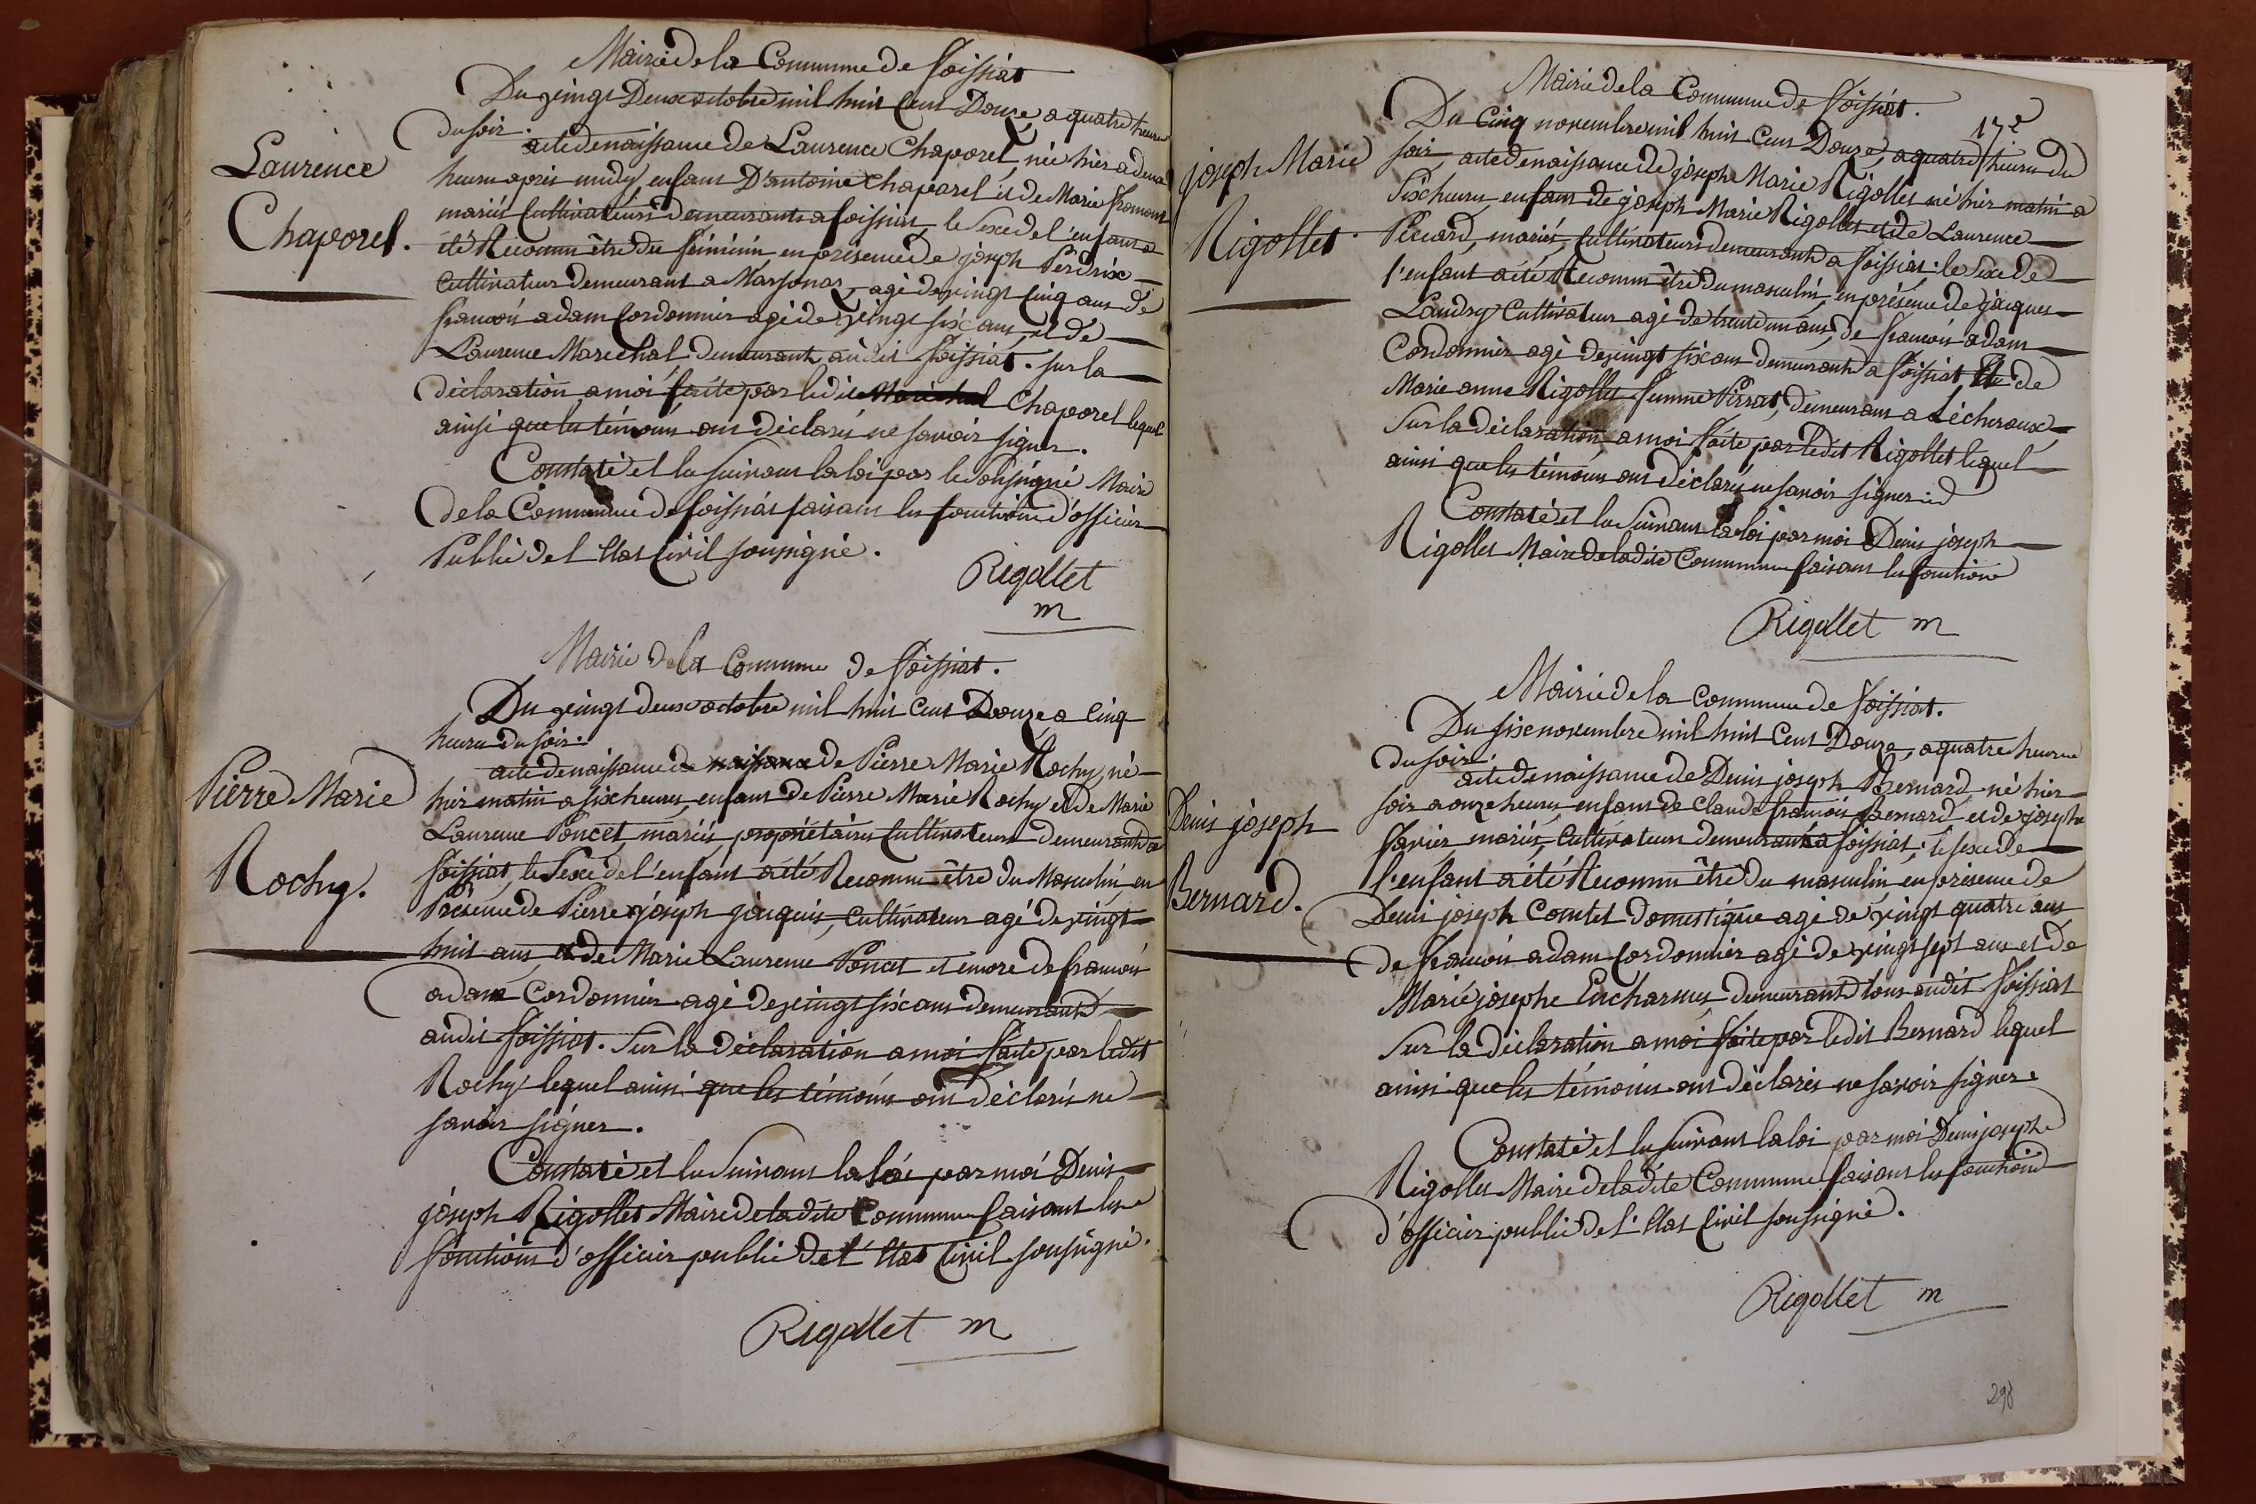 Mairie de la Commune de foissiat
Du vingt Deux octobre mil huit Cent Douze, a quatre heures
du soir.
acte de naissance de Laurence Chaporel, née hier a deux
heures après midy, enfant D'antoine Chaporel et de Marie fromont
mariés Cultivateurs demeurants a foissiat, le Sexe de l'enfant a
été Reconnu être du féminin en présence de joseph Perdrix
Cultivateur demeurant a Marsonas, agé de vingt Cinq ans de
francois adam Cordonnier agé de vingt six ans, et de
Laurence Marechal demeurants audit foissiat. sur la
déclaration a moi faite par ledit Chaporel lequel
ainsi que les témoins ont déclarés ne savoir signer.
Constaté et lu suivant la loi par le Soussigné Maire
de la Commune de foissiat faisant les fonctions d'officier
Public de l'Etat Civil soussigné.
Rigollet
m
Laurence
Chaporel.
Mairie de la Commune de foissiat.
Du vingt deux octobre mil huit Cent Douze a Cinq
heures du soir.
acte de naissance de naissance de Pierre Marie Rochy, né
hier matin a six heures, enfant de Pierre Marie Rochy et de Marie
Laurence Poncet, mariés, propriétaires Cultivateurs demeurants a
foissiat, le Sexe de l'enfant a été Reconnu être du Masculin en
Présence de Pierre joseph jacquis, Cultivateur agé de vingt
huit ans, et de Marie Laurence Poncet et encore de francois
adam Cordonnier agé de vingt six ans demeurants
audit foissiat. Sur la déclaration a moi faite par ledit
Rochy lequel ainsi que les témoins ont déclarés ne
savoir signer.
Constaté et lu Suivant la loi par moi Denis
joseph Rigollet Maire de ladite Commune faisant les
fonctions d'officier public de l'Etat Civil soussigné.
Rigollet m
Pierre Marie
Rochy.
Mairie de la Commune de foissiat.
17e
Du Cinq novembre mil huit Cent Douze, a quatre heures du
soir, acte de naissance de joseph Marie Rigollet né hier matin a
Six heures, enfant de joseph Marie Rigollet et de Laurence
mariés, Cultivateurs demeurants a foissiat: le Sexe de
l'enfant a été Reconnu être du masculin, en présence de jacques
Laudry Cultivateur agé de trente un ans, de francois adam
Cordonnier agé de vingt six ans demeurants a foissiat, Et de
Marie anne Rigollet femme Pirrat, demeurant a Lécheroux,
Sur la déclaration a moi faite par ledit Rigollet lequel
ainsi que les témoins ont déclarés ne savoir signer
Constaté et lu Suivant la loi par moi Denis joseph
Rigollet Maire de ladite Commune faisant les fonctions
Rigollet m
joseph Marie
Rigollet.
Mairie de la Commune de foissiat.
Du six novembre mil huit Cent Douze, a quatre heures
du soir
acte de naissance de Denis joseph Bernard né hier
soir a onze heures, enfant de Claude francois Bernard et de josephe
mariés, Cultivateurs demeurants a foissiat; le sexe de
l'enfant a été Reconnu être du masculin en présence de
Denis joseph Comtet domestique agé de vingt quatre ans
de francois adam Cordonnier agé de vingt sept ans et de
Marie josephe demeurants tous audit foissiat
Sur la déclaration a moi faite par ledit Bernard lequel
ainsi que les témoins ont déclarés ne savoir signer.
Constaté et lu Suivant la loi par moi Denis joseph
Rigollet Maire de ladite Commune faisant les fonctions
d'officier public de l'Etat Civil soussigné.
Rigollet m
Denis joseph
Bernard.
298